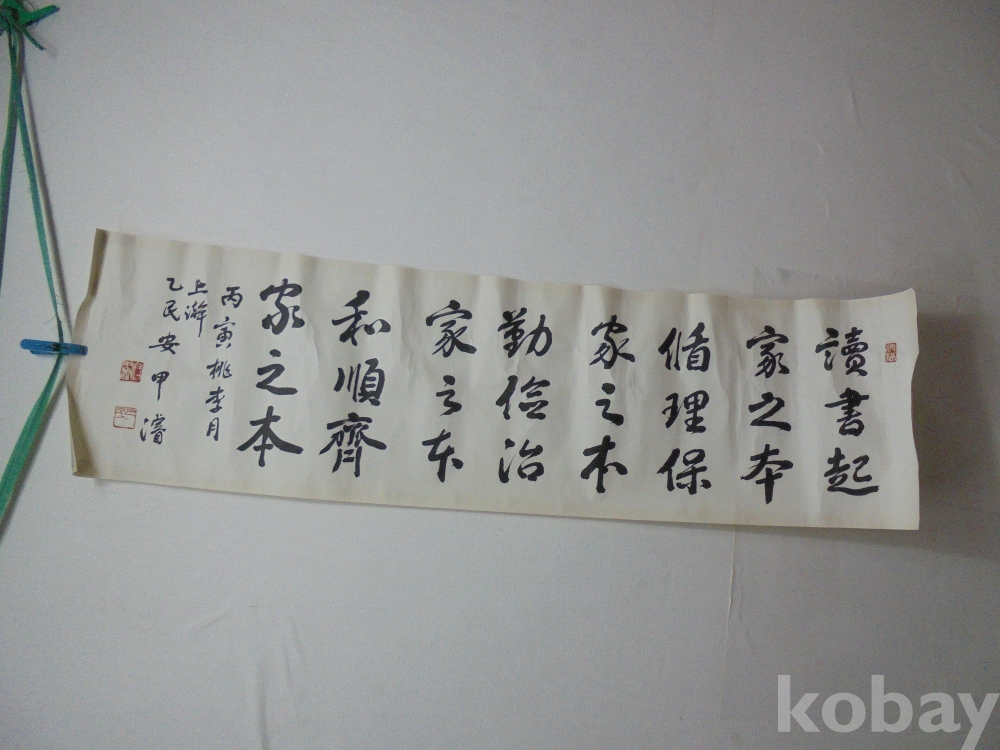 讀書起
家之本
循理保
家之本
勤儉治
家之本
和順齊
家之本
丙寅桃李月
上澣
乙民安甲濬
kobay